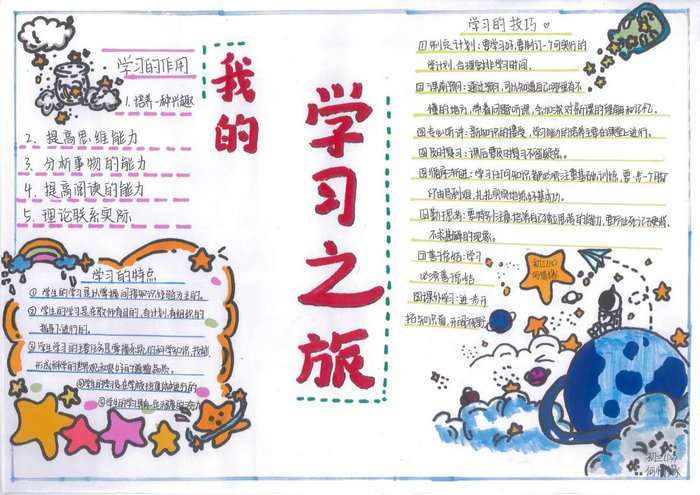 学习的作用
1. 培养一种兴趣
2. 提高思维能力
3. 分析事物的能力
4. 提高阅读的能力
5. 理论联系实际
我的
学习之旅
学习的特点
① 学生的学习是以掌握间接知识经验为主的。
② 学生的学习是在教师有目的、有计划、有组织的
指导下进行的。
③ 学生学习的主要任务是掌握系统的科学知识、技能
形成科学的世界观和良好的道德品质。
④学生的学习是在学校班集体中进行的
⑤学生的学习具有一定
学习的技巧
①制定计划：要学习好，要制订一个切实可行的
学习计划，合理安排学习时间。
②课前预习：通过预习，可以知道自己哪里有不
懂的地方，带着问题听课，会加深对新课的理解和记忆。
③专心听讲：新知识的接受，学习能力的培养主要在课堂上进行。
④及时复习：课后要及时复习不留疑点。
⑤循序渐进：学习任何知识都必须注重基础训练，要一步一个脚
印由易到难，扎扎实实地练好基本功。
⑥勤于思考：要特别注意培养自己独立思考的能力，要防止死记硬背，
不求甚解的现象。
⑦善于总结：学习
必须善于总结
⑧课外学习：进一步
拓知识面，开阔视野
初三(4)
何情缘
初三(4)
何情缘